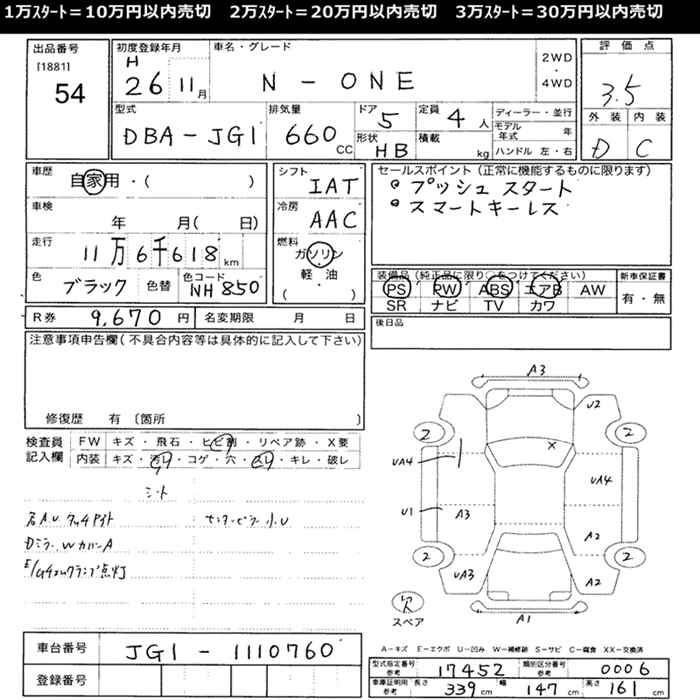 1万スタート＝10万円以内売切　2万スタート＝20万円以内売切　3万スタート＝30万円以内売切
出品番号
[1881]
54
初度登録年月
H
26 11月
車名・グレード
N-ONE
2WD
・
4WD
評価点
3.5
外装 内装
D C
型式
DBA-JG1
排気量
660 CC
ドア 5
形状 HB
定員 4 人
積載 kg
ディーラー・並行
モデル年式 年
ハンドル 左・右
車歴
自家用・( )
車検
年 月( 日)
走行
11万6千618km
色
ブラック
色替
色コード
NH850
シフト
IAT
冷房
AAC
燃料
ガソリン
軽油
( )
セールスポイント（正常に機能するものに限ります）
・プッシュスタート
・スマートキーレス
装備品（純正品に限り○をつけてください）
PS PW ABS エアB AW
SR ナビ TV カワ
新車保証書
有・無
R券 9,670円
名変期限 月 日
後日品
注意事項申告欄(不具合内容等は具体的に記入して下さい)
修復歴 有〔箇所 〕
検査員記入欄
FW キズ・飛石・ヒビ割・リペア跡・X要
内装 キズ・汚レ・コゲ・穴・スレ・キレ・破レ
シート
右A.U タッチアト
センターピラー小U
Dミラー.WカバーA
E/Gチェックランプ点灯
A3
U2
2
2
X
UA4
UA4
U1
A3
A2
2
2
UA3
A2
欠
スペア
A1
A－キズ E－エクボ U－凹み W－補修跡 S－サビ C－腐食 XX－交換済
車台番号
JG1-1110760
登録番号
型式指定番号
参考
17452
類別区分番号
参考
0006
車庫証明用
参考
長さ 339cm
幅 147cm
高さ 161cm